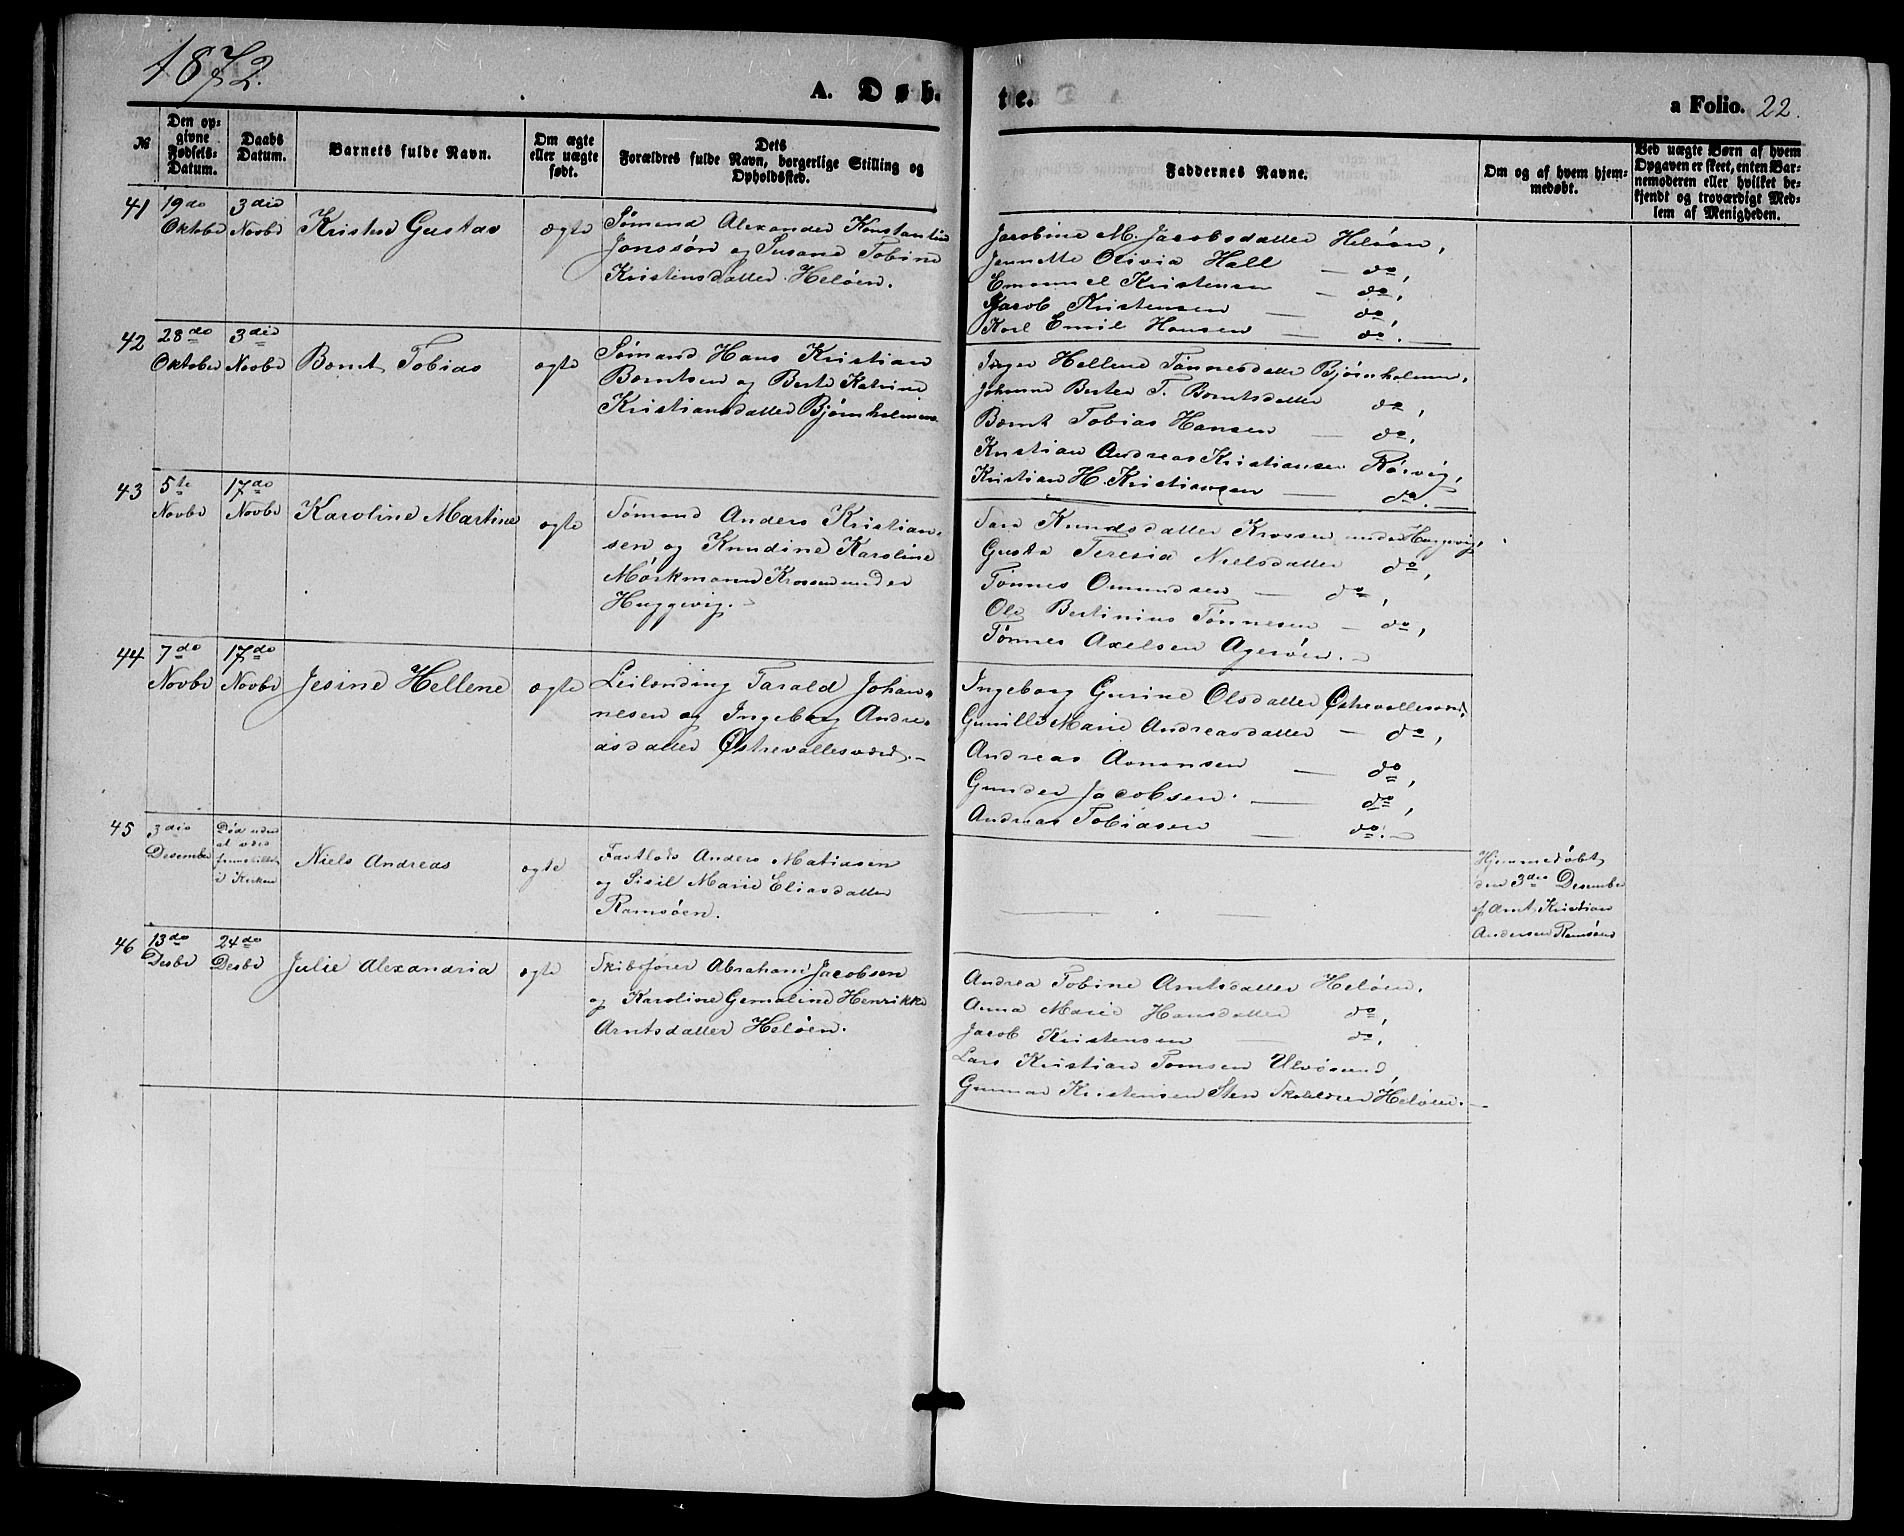 1872.
A. Døb-
te.
a Folio. 22.
№
Den op-
givne
Fødsels-
Datum.
Daabs
Datum.
Barnets fulde Navn.
Om ægte
eller uægte
født.
Dets
Forældres fulde Navn, borgerlige Stilling og
Opholdssted.
Faddernes Navne.
Om og af hvem hjem-
medøbt.
Ved uægte Børn af hvem
Opgaven er skeet, enten Bar-
nemoderen eller hvilket be-
kjendt og troværdigt Med-
lem af Menigheden.
41
19de
Oktober
3die
Novbr
Kristen Gustav
ægte
Sømand Alexander Konstantin
Jonssøn og Susane Tobine
Kristensdatter Heløen.
Jacobine M. Jacobsdatter Heløen,
Jennette Olivia Hall — do,
Emanuel Kristensen — do,
Jacob Kristensen — do,
Karl Emil Hansen — do. —
42
28de
Oktober
3die
Novbr
Bernt Tobias
ægte
Sømand Hans Kristian
Berntsen og Berte Katrine
Kristiansdatter Bjørnholmen
Inger Hellene Tønnesdatter Bjørnholmen,
Johanne Bertea T. Berntsdatter do,
Bernt Tobias Hansen — do,
Kristian Andreas Kristiansen Rosvig,
Kristian H. Kristiansen — do. —
43
5te
Novbr
17de
Novbr
Karoline Martine
ægte
Sømand Anders Kristian-
sen og Knudine Karoline
Mørkmann Krossen under
Huggevig. —
Sara Knudsdatter Krossen under Huggevig,
Gusta Teresia Nielsdatter do,
Tønnes Omundsen — do,
Ole Bertinius Tønnesen — do,
Tønnes Axelsen Agerøen. —
44
7de
Novbr
17de
Novbr
Jesine Hellene
ægte
Leilænding Tarald Johan-
nesen og Ingeborg Andre-
asdatter Østrevallesverd. —
Ingeborg Gurine Olsdatter Østrevallesverd,
Gunille Marie Andreasdatter — do,
Andreas Aanensen — do,
Gunder Jacobsen — do,
Andreas Tobiasen — do. —
45
3die
Desember
Død uden
at være
fremstillet
i Kirken
Niels Andreas
ægte
Fastlods Anders Matiasen
og Sisil Marie Eliasdatter
Ramsøen.
Hjemmedøbt
den 3die Desember
af Arnt Kristian
Andersen Ramsøen
46
13de
Desbr
24de
Desbr
Julie Alexandria
ægte
Skibsfører Abraham Jacobsen
og Karoline Gemaline Henrikke
Arntsdatter Heløen.
Andrea Tobine Arntsdatter Heløen,
Anna Marie Hansdatter do,
Jacob Kristensen — do,
Lars Kristian Tomsen Ulvøsund,
Gunnar Kristensen Sten Skolelærer Heløen. —